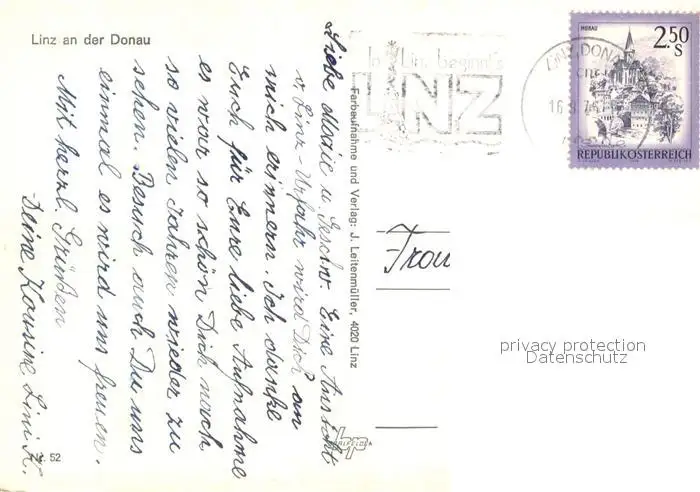 Linz an der Donau
Liebe Marie u. Geschw. Eine Ansicht
v. Linz-Urfahr wird Dich an
mich erinnern. Ich danke
Euch für Eure liebe Aufnahme
es war so schön Dich nach
so vielen Jahren wieder zu
sehen. Besuch auch Du uns
einmal es wird uns freuen.
Mit herzl. Grüßen
Deine Kousine Lini K.
52
Farbaufnahme und Verlag: J. Leitenmüller, 4020 Linz
In Linz beginnt's
LINZ
LINZ, DONAU
MURAU
2.50
S
REPUBLIK ÖSTERREICH
Frau
privacy protection
Datenschutz